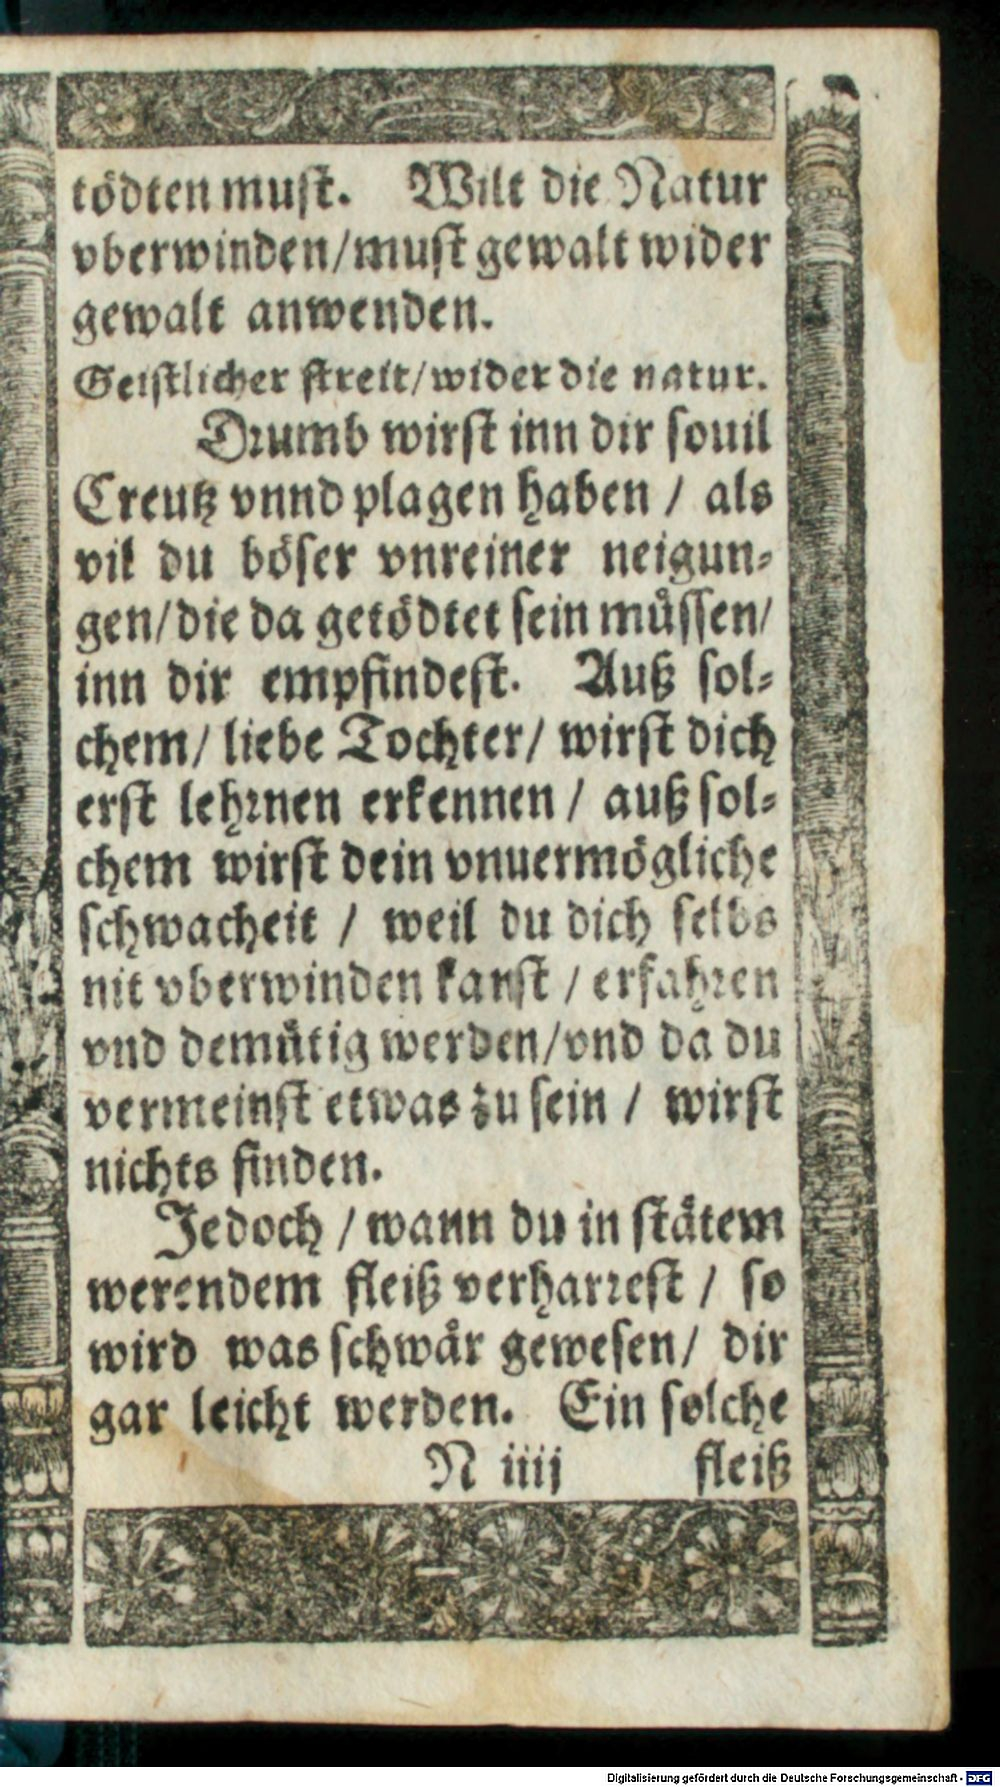 tödten must. Wilt die Natur
vberwinden/must gewalt wider
gewalt anwenden.
Geistlicher streit/wider die natur.
Drumb wirst inn dir souil
Creutz vnnd plagen haben / als
vil du böser vnreiner neigun-
gen/die da getödtet sein müssen/
inn dir empfindest. Auß sol-
chem/ liebe Tochter/ wirst dich
erst lehrnen erkennen / auß sol-
chem wirst dein vnuermögliche
schwacheit / weil du dich selbs
nit vberwinden kanst / erfahren
vnd demütig werden/vnd da du
vermeinst etwas zu sein / wirst
nichts finden.
Jedoch / wann du in stätem
werendem fleiß verharrest / so
wird was schwär gewesen/ dir
gar leicht werden. Ein solche
N iiij fleiß
Digitalisierung gefördert durch die Deutsche Forschungsgemeinschaft - DFG